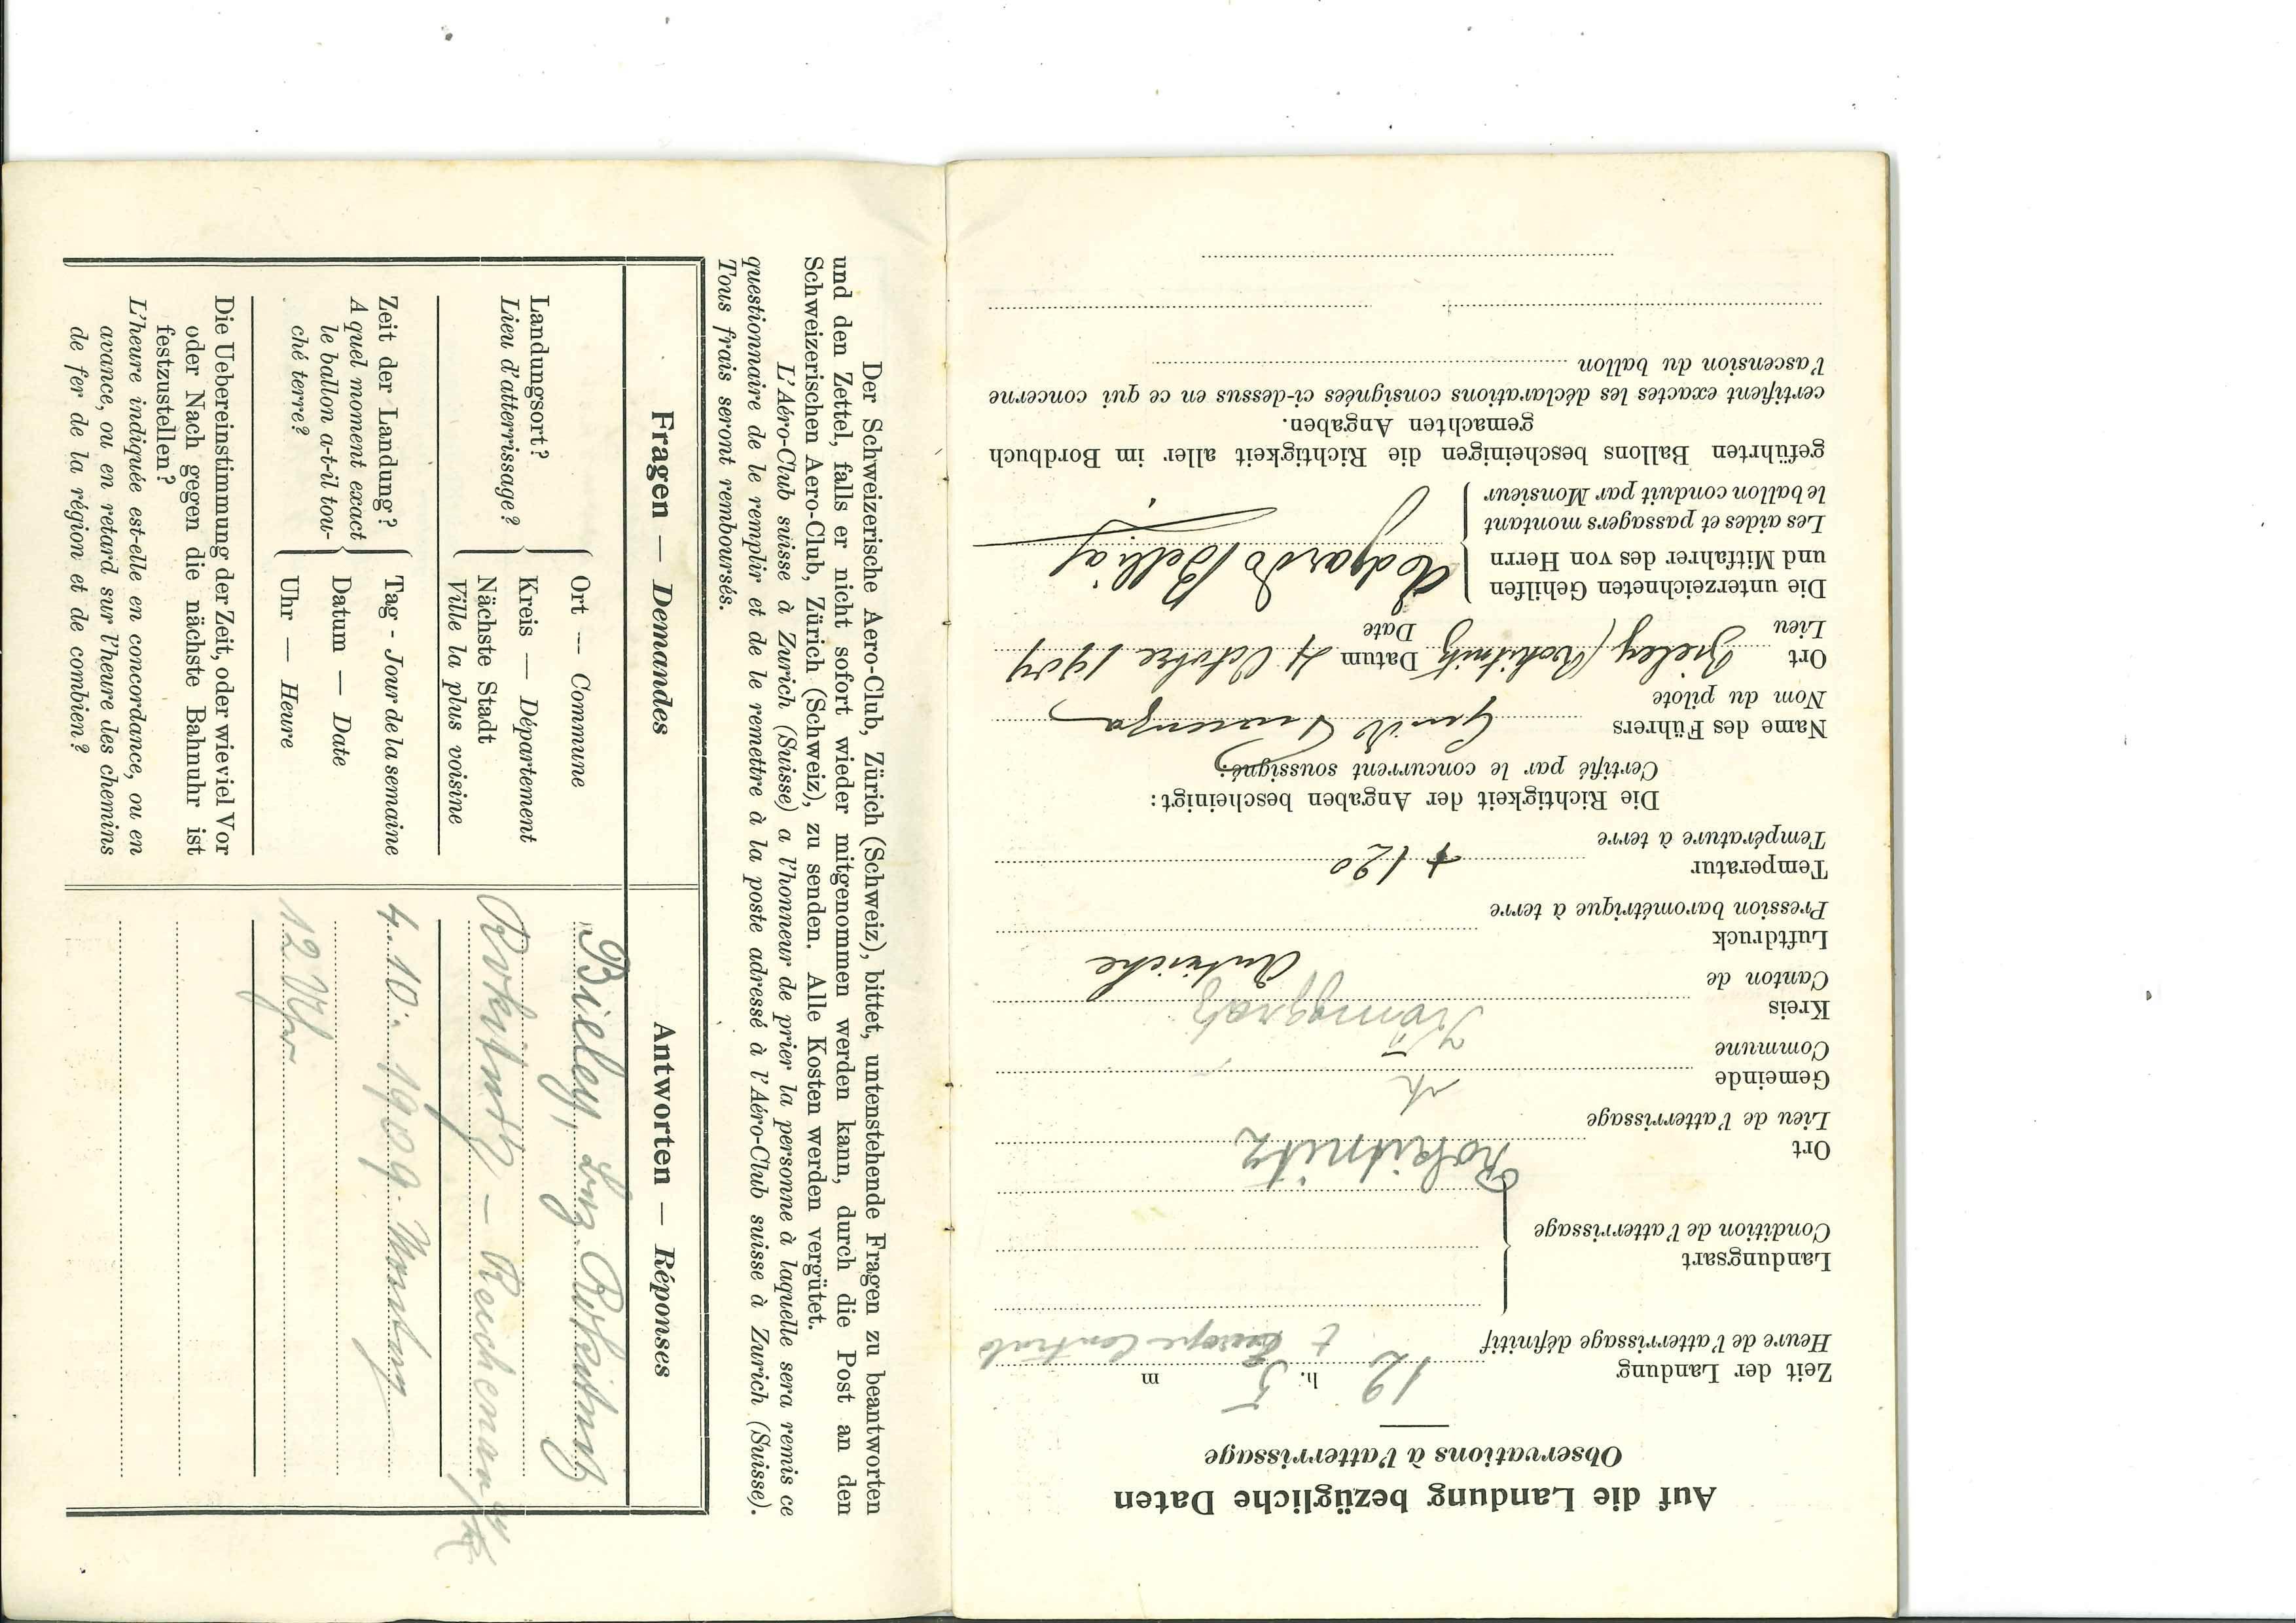 Der Schweizerische Aero-Club, Zürich (Schweiz), bittet, untenstehende Fragen zu beantworten
und den Zettel, falls er nicht sofort wieder mitgenommen werden kann, durch die Post an den
Schweizerischen Aero-Club, Zürich (Schweiz), zu senden. Alle Kosten werden vergütet.
L'Aéro-Club suisse à Zurich (Suisse) a l'honneur de prier la personne à laquelle sera remis ce
questionnaire de le remplir et de le remettre à la poste adressé à l'Aéro-Club suisse à Zurich (Suisse).
Tous frais seront remboursés.
Fragen — Demandes
Antworten — Réponses
Landungsort?
Lieu d'atterrissage?
Ort — Commune
Bieley, Bez. Rokitnitz
Kreis — Département
Nächste Stadt
Ville la plus voisine
Rokitnitz –
Zeit der Landung?
A quel moment exact
le ballon a-t-il tou-
ché terre?
Tag - Jour de la semaine
4. 10. 1909. Montag
Datum — Date
Uhr — Heure
12 Uhr
Die Uebereinstimmung der Zeit, oder wieviel Vor
oder Nach gegen die nächste Bahnuhr ist
festzustellen?
L'heure indiquée est-elle en concordance, ou en
avance, ou en retard sur l'heure des chemins
de fer de la région et de combien?
Auf die Landung bezügliche Daten
Observations à l'atterrissage
Zeit der Landung
Heure de l'atterrissage définitif
12 h. 5 m
t Europe Centrale
Landungsart
Condition de l'atterrissage
Ort
Lieu de l'atterrissage
Rokitnitz
Gemeinde
Commune
Kreis
Canton de
Königgratz
Autriche
Luftdruck
Pression barométrique à terre
Temperatur
Température à terre
+ 120
Die Richtigkeit der Angaben bescheinigt:
Certifié par le concurrent soussigné:
Name des Führers
Nom du pilote
Ort
Lieu
Bieley (Rokitnitz
Datum
Date
4 Octobre 1909
Die unterzeichneten Gehilfen
und Mitfahrer des von Herrn
Les aides et passagers montant
le ballon conduit par Monsieur
geführten Ballons bescheinigen die Richtigkeit aller im Bordbuch
gemachten Angaben.
certifient exactes les déclarations consignées ci-dessus en ce qui concerne
l'ascension du ballon